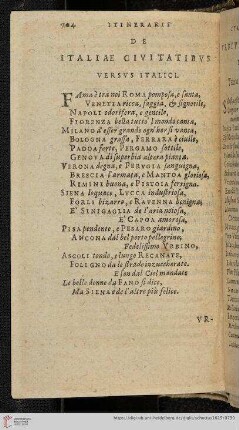 704 ITINERARII
DE
ITALIAE CIVITATIBVS
VERSVS ITALICI.
FAma è tra noi ROMA pomposa, e santa,
VENETIA ricca, saggia, & signorile,
NAPOLI odorifera, e gentile,
FIORENZA bella tutto l'mondo canta,
MILANO d'esser grande ogn'hor si vanta,
BOLOGNA grassa, FERRARA è ciuile,
PADOA forte, BERGAMO sottile,
GENOVA di superbia altera pianta.
VERONA degna, e PERVGIA sanguigna,
BRESCIA l'armata, e MANTOA gloriosa,
REMINE buona, e PISTOIA ferrigna.
SIENA loquace, LVCCA industriosa,
FORLI bizarro, e RAVENNA benigna,
E' SINEGALIA de l'aria noiosa,
E' CAPOA amorosa,
PISA pendente, e PESARO giardino,
ANCONA dal bel porto pellegrino,
Fedelissimo VRBINO,
ASCOLI tondo, e lungo RECANATE,
FOLIGNO da le strade inzuccherate.
E par dal Ciel mandate
Le belle donne da FANO si dice,
Ma SIENA de l'altre più felice.
VR-